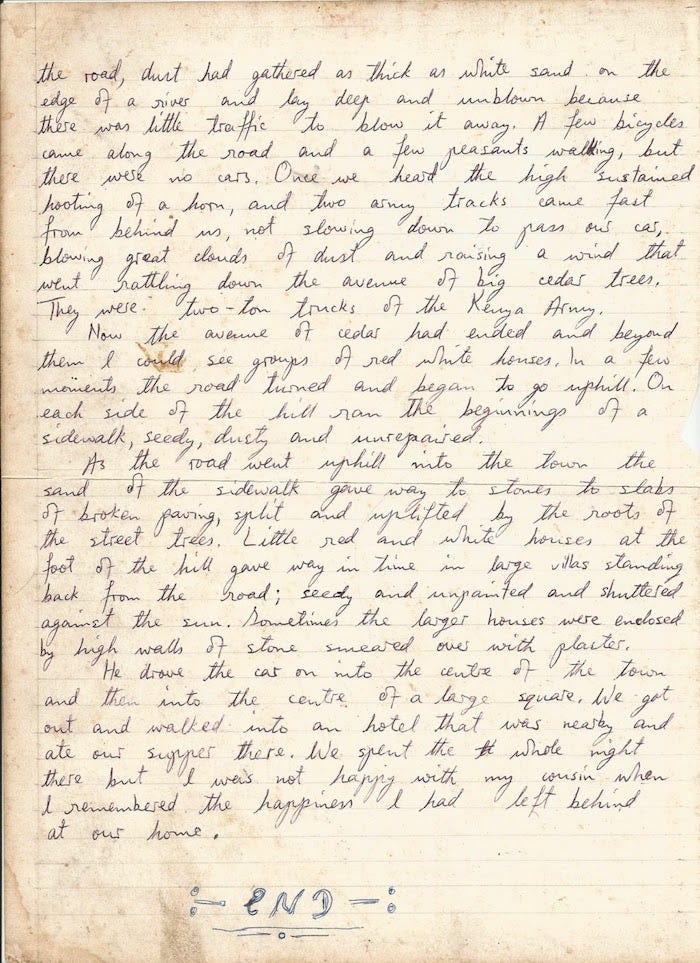 the road, dust had gathered as thick as white sand on the
edge of a river and lay deep and unblown because
there was little traffic to blow it away. A few bicycles
came along the road and a few peasants walking, but
there were no cars. Once we heard the high sustained
hooting of a horn, and two army tracks came fast
from behind us, not slowing down to pass our car,
blowing great clouds of dust and raising a wind that
went rattling down the avenue of big cedar trees.
They were two-ton trucks of the Kenya Army.
Now the avenue of cedar had ended and beyond
them I could see groups of red white houses. In a few
moments the road turned and began to go uphill. On
each side of the hill ran the beginnings of a
sidewalk, seedy, dusty and unrepaired.
As the road went uphill into the town the
sand of the sidewalk gave way to stones to slabs
of broken paving, split and uplifted by the roots of
the street trees. Little red and white houses at the
foot of the hill gave way in time in large villas standing
back from the road; seedy and unpainted and shuttered
against the sun. Sometimes the larger houses were enclosed
by high walls of stone smeared over with plaster.
He drove the car on into the centre of the town
and then into the centre of a large square. We got
out and walked into an hotel that was nearby and
ate our supper there. We spent the whole night
there but I was not happy with my cousin when
I remembered the happiness I had left behind
at our home.
:- END -: